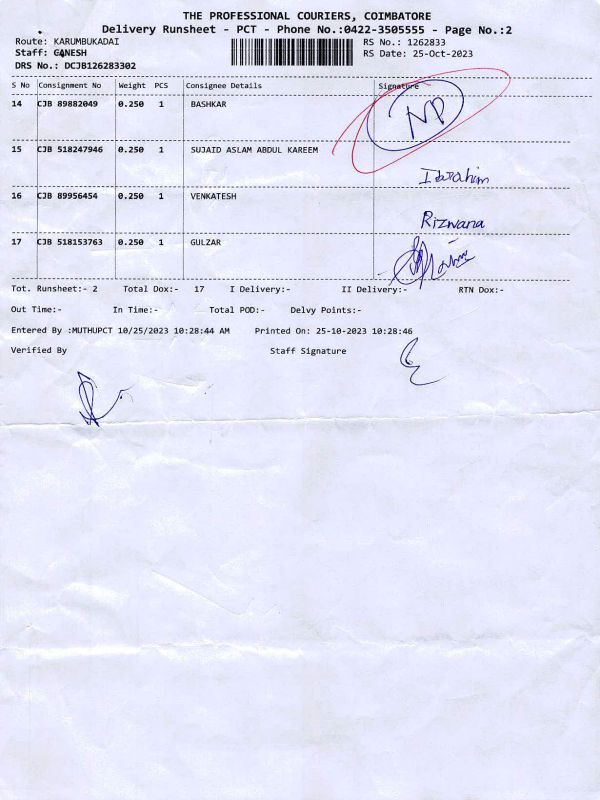 THE PROFESSIONAL COURIERS, COIMBATORE
Delivery Runsheet - PCT - Phone No.:0422-3505555 - Page No.:2
Route: KARUMBUKADAI RS No.: 1262833
Staff: GANESH RS Date: 25-Oct-2023
DRS No.: DCJB126283302
S No Consignment No Weight PCS Consignee Details Signature
14 CJB 89882049 0.250 1 BASHKAR NP
15 CJB 518247946 0.250 1 SUJAID ASLAM ABDUL KAREEM
Ibrahim
16 CJB 89956454 0.250 1 VENKATESH
Rizwana
17 CJB 518153763 0.250 1 GULZAR
Tot. Runsheet:- 2 Total Dox:- 17 I Delivery:- II Delivery:- RTN Dox:-
Out Time:- In Time:- Total POD:- Delvy Points:-
Entered By :MUTHUPCT 10/25/2023 10:28:44 AM Printed On: 25-10-2023 10:28:46
Verified By Staff Signature